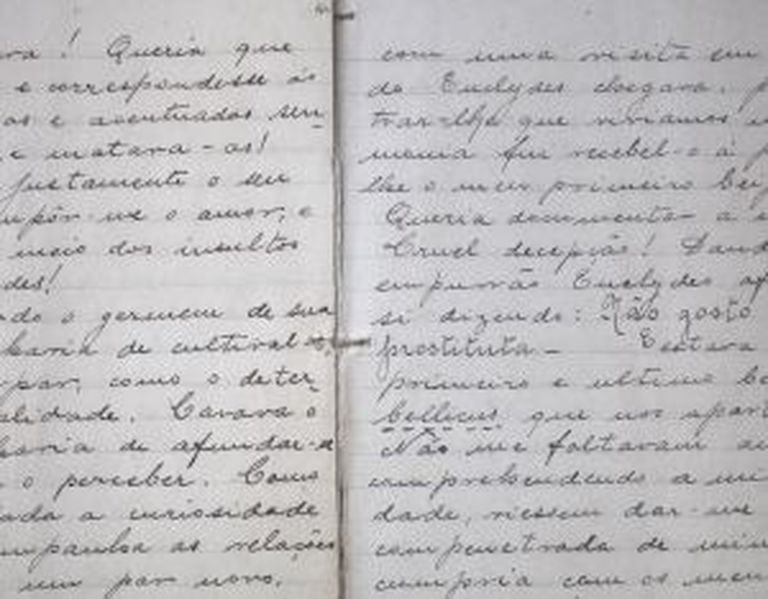 va! Queria que
e correspondesse ás
os e acentuados sen-
e matava-as!
justamente o seu
mpôr-me o amor, e
meio dos insultos
des!
ndo o germem de sua
haria de cultival-o,
par, como o deter-
alidade. Cavava o
haria de afundar-se
o perceber. Como
ada a curiosidade
mpanha as relações
um par novo.
com uma visita em
do Euclydes chegava. p
trar-lhe que viviamos
mema fui recebel-o á p
lhe o meu primeiro bei
Queria documentar a
Cruel decepção! Dand
empurrão Euclydes af
si dizendo: Não gosto
prostituta— Estava
primeiro e ultimo
bellicus que nos apar
Não me faltavam
comprehendendo a mi
dade, viessem dar-me
compenetrada de min
cumpria com os meu